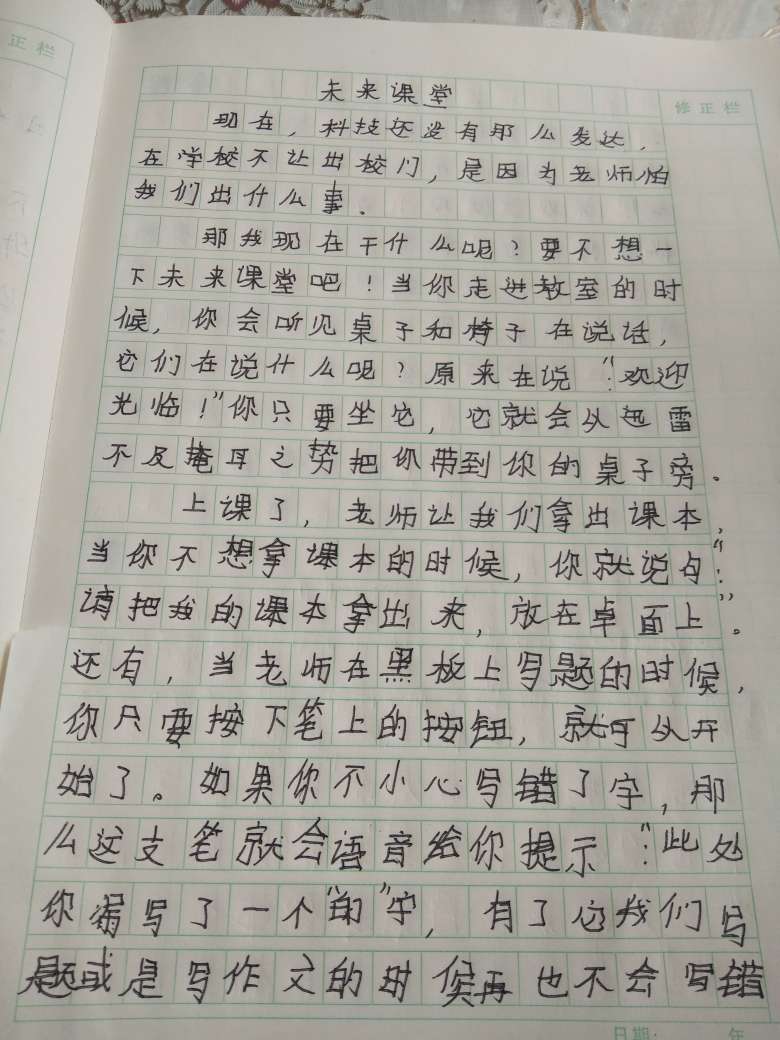 正栏
修正栏
未来课堂
现在，科技还没有那么发达，
在学校不让出校门，是因为老师怕
我们出什么事．
那我现在干什么呢？要不想一
下未来课堂吧！当你走进教室的时
候，你会听见桌子和椅子在说话，
它们在说什么呢？原来在说：“欢迎
光临！”你只要坐它，它就会以迅雷
不及掩耳之势把你带到你的桌子旁。
上课了，老师让我们拿出课本，
当你不想拿课本的时候，你就说句：“
请把我的课本拿出来，放在桌面上”。
还有，当老师在黑板上写题的时候，
你只要按下笔上的按钮，就可以开
始了。如果你不小心写错了字，那
么这支笔就会语音给你提示：“此处
你漏写了一个“的”字，有了它我们写
题或是写作文的时候再也不会写错
日期： 年